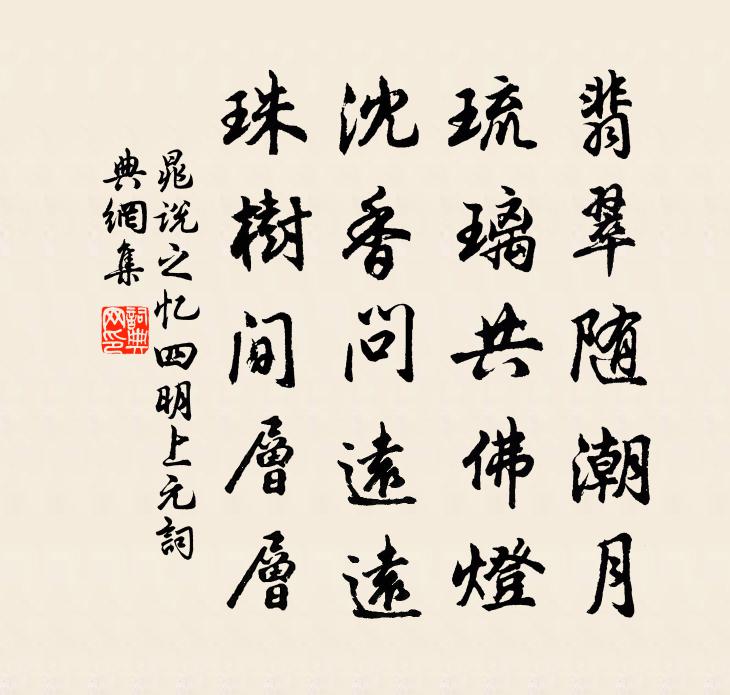 翡翠随潮月
琉璃共佛燈
沈香問遠遠
珠樹間層層
晁说之忆四明上元詞
典網集
詞典
网印